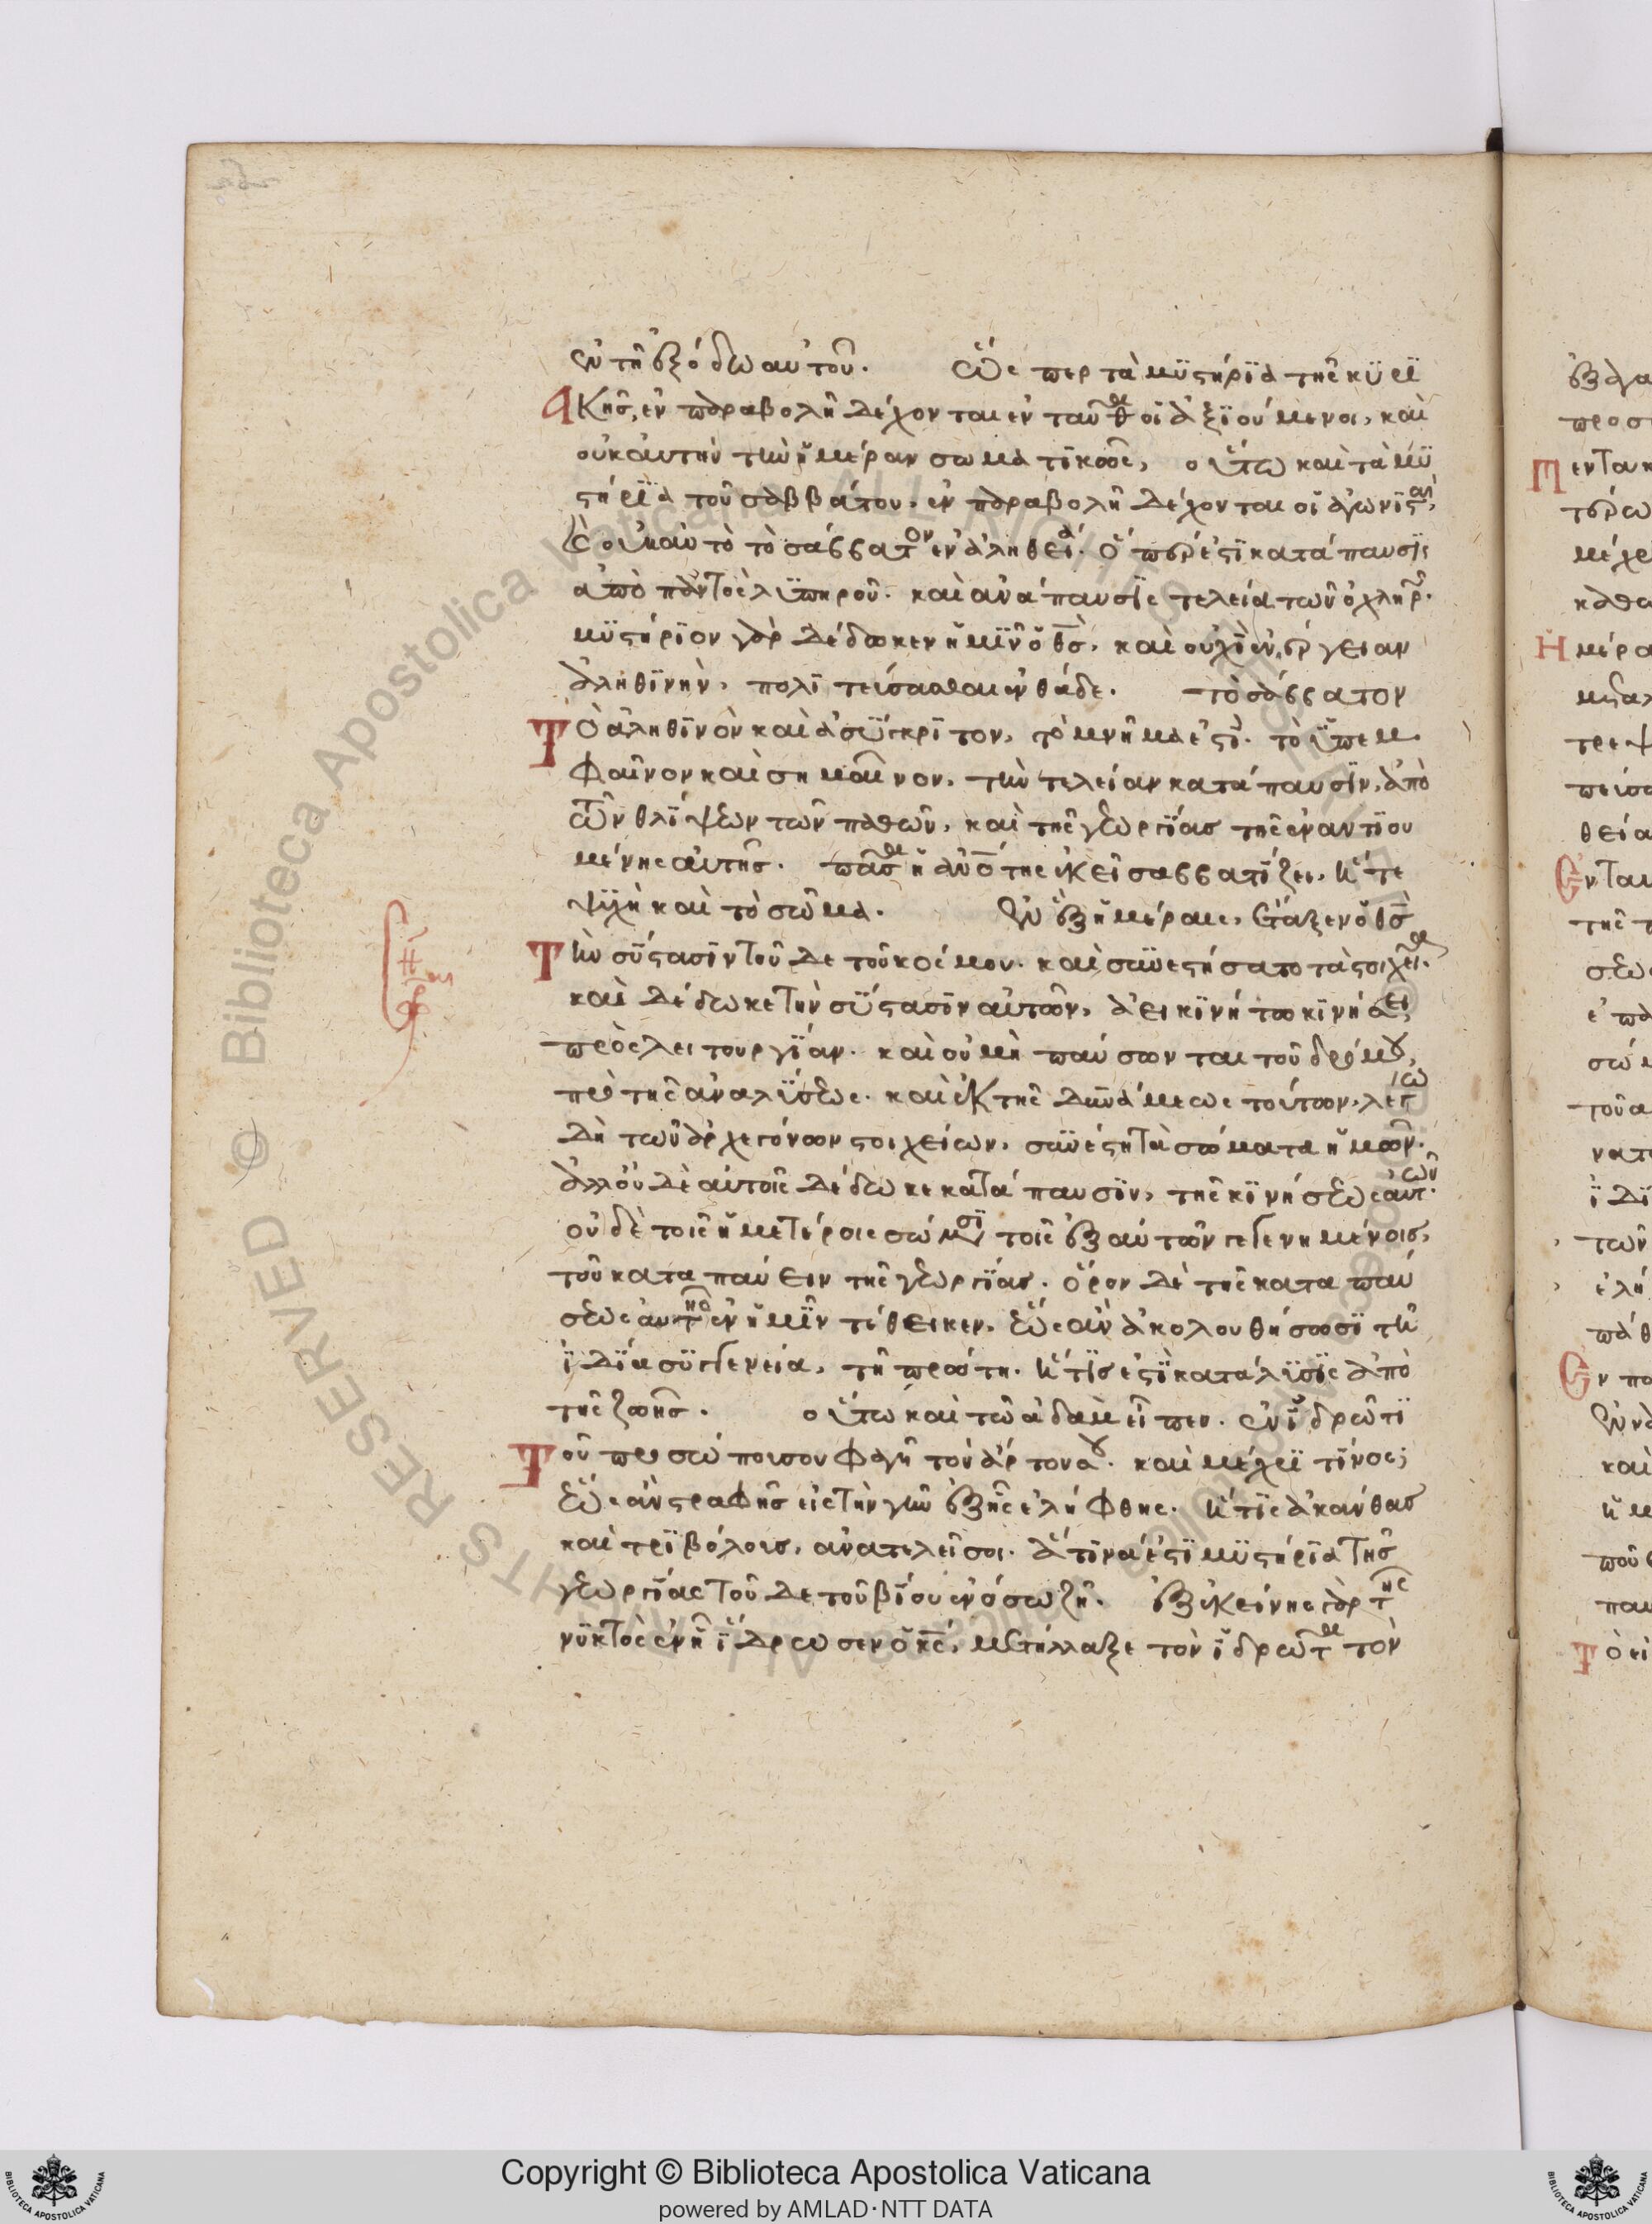 ἐν τῆ ἐξόδω αὐτοῦ. ὥσπερ τὰ μϋστήρϊα τῆς κϋρϊ
ακῆς, ἐν παραβολῆ δέχονται ἐνταῦθα οἱ ἀξϊούμενοι, καὶ
οὐκ αὐτὴν τὴν ἡμέραν σωματϊκῶς, οὕτω καὶ τὰ μϋ
στήρϊα τοῦ σαββάτου, ἐν παραβολῆ δέχονται οἱ ἀγωνϊσταὶ,
καὶ οὐκ αὐτὸ τὸ σάββατον ἐν ἀληθεία. ὅπερ ἐστὶ κατάπαυσϊς
ἀπὸ παντὸς λϋπηροῦ. καὶ ἀνάπαυσϊς τελεία τῶν ὀχληρῶν.
μϋστήρϊον γὰρ δέδωκεν ἡμῖν ὁ θς, καὶ οὐχὶ ἐνέργειαν
ἀληθϊνὴν, πολϊτεύσασθαι ἐνθάδε. τὸ σάββατον
Τὸ ἀληθϊνὸν καὶ ἀσύγκρϊτον, τὸ μνῆμα ἐστὶ. τὸ ὑπεμ
φαῖνον καὶ σημαῖνον, τὴν τελείαν κατάπαυσϊν, ἀπὸ
τῶν θλίψεων τῶν παθῶν, καὶ τῆς γεωργϊας τῆς ἐναντϊου
μένης αὐτῆς. πᾶσα ἡ ἀνότης ἐκεῖ σαββατίζει, ἥτε
ψϋχὴ καὶ τὸ σῶμα. ἐν ἓξ ἡμέραις, ἔταξεν ὁ θς
Τὴν σύστασϊν τοῦδε τοῦ κόσμου. καὶ συνεστήσατο τὰ στοιχεῖα.
καὶ δέδωκε τὴν σύστασϊν αὐτῶν, ἀεικϊνήτω κϊνήσει,
πρὸς λειτουργϊαν. καὶ οὐ μὴ παύσωνται τοῦ δρόμου,
πρὸ τῆς ἀναλύσεως. καὶ ἐκ τῆς δϋνάμεως τούτων, λέγω
δὴ τῶν ἀρχεγόνων στοιχείων, συνέστη τὰ σώματα ἡμῶν.
ἀλλ' οὐδὲ αὐτοῖς δέδωκε κατάπαυσϊν, τῆς κϊνήσεως αὐτῶν.
οὐδὲ τοῖς ἡμετέροις σώμασϊ τοῖς ἐξ αὐτῶν γεγενημένοις,
τοῦ καταπαύειν τῆς γεωργϊας. ὅρον δὲ τῆς καταπαύ
σεως αὐτῆς ἐν ἡμῖν τέθεικεν, ἕως ἂν ἀκολουθήσωσϊ τῆ
ἰδία συγγενεία, τῆ πρώτη. ἥτϊς ἐστὶ κατάλϋσϊς ἀπὸ
τῆς ζωῆς. οὕτω καὶ τῶ ἀδὰμ εἶπεν. ἐν ἱδρῶτϊ
Τοῦ προσώποι σου φαγῆ τὸν ἄρτον σου. καὶ μέχρϊ τίνος;
ἕως ἂν στραφῆς εἰς τὴν γῆν ἐξ ἧς ἐλήφθης. ἥτις ἀκάνθας
καὶ τρϊβόλους, ἀνατελεῖ σοι. ἅτϊνα ἐστὶ μϋστήρϊα τῆς
γεωργίας τοῦδε τοῦ βίου ἐν ὅσω ζῆ. ἐξ ἐκείνης γὰρ τῆς
νϋκτὸς ἐν ἧ ἵδρωσεν ὁ κς, μετήλλαξε τὸν ἱδρῶτα τὸν
Copyright © Biblioteca Apostolica Vaticana
powered by AMLAD·NTT DATA